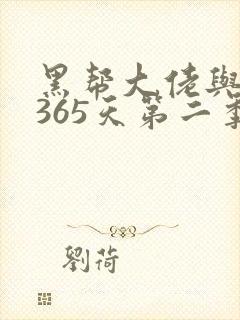 黑帮大佬與
365天第二季
劉荷